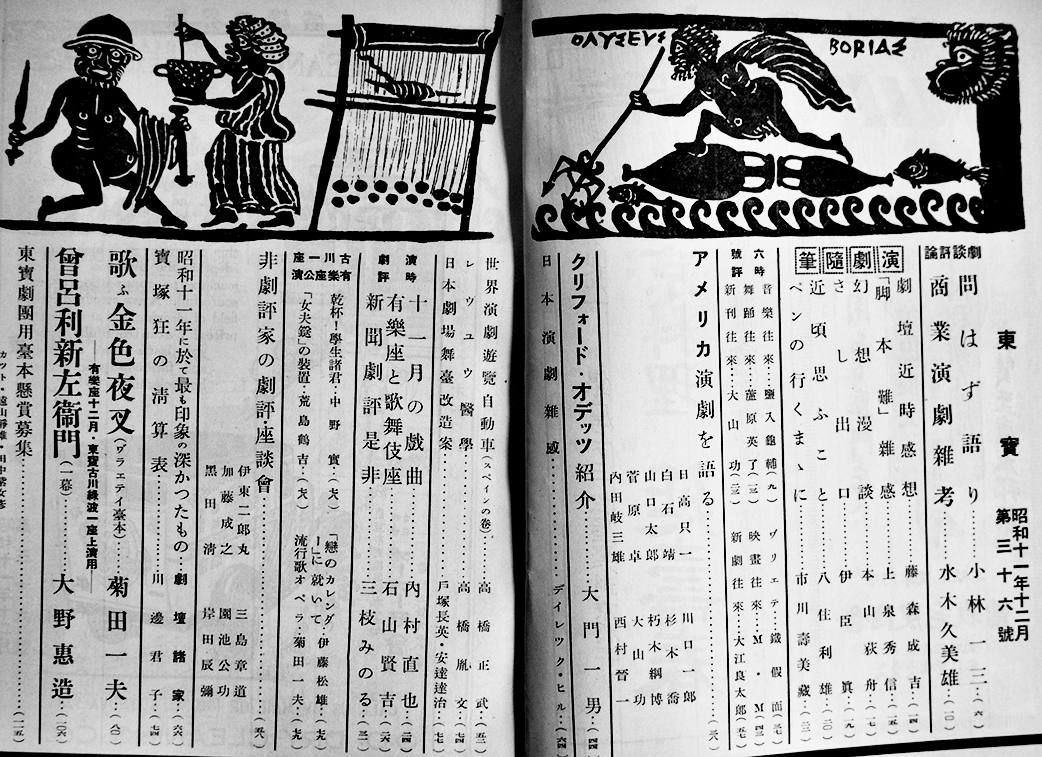 ΟΛΥΣΕΥΣ
ΒΟΡΙΑΣ
東寶
昭和十一年十二月
第三十六號
劇談評論
問はず語り……小林一三…(六)
商業演劇雑考……水木久美雄…(一〇)
演劇隨筆
劇壇近時感想……藤森成吉…(一四)
「脚本難」雑感……上泉秀信…(一五)
幻想漫談……本山荻舟…(一七)
さし出口……伊臣眞…(一九)
近頃思ふこと……八住利雄…(二〇)
ペンの行くまゝに……市川壽美藏…(二三)
六號時評
音樂往來……鹽入龜輔(九)
舞踊往來……蘆原英了(一三)
新刊往來……大山功(二三)
ヴリエテ……鐵假面(三七)
映畫往來……M・M(四三)
新劇往來……大江良太郎(五七)
アメリカ演劇を語る……(三八)
日高只一
白石靖
山口太郎
菅原卓
内田岐三雄
川口一郎
杉木喬
朽木綱博
大山功
西村晉一
クリフォード・オデッツ紹介……大門一男…(四四)
日本演劇雑感……デイレツク・ヒル…(六四)
世界演劇遊覽自動車(スペインの卷)……高橋正武…(五二)
レウユウ醫學……高橋胤文…(七四)
日本劇場舞臺改造案……戸塚長英・安達達治…(七七)
演劇時評
十一月の戯曲……內村直也…(二四)
有樂座と歌舞伎座……石山賢吉…(二六)
新聞劇評是非……三枝みのる…(三二)
古川一座
有樂座公演
乾杯!學生諸君・中野實・(六八)
「女夫鎹」の裝置・荒島鶴吉・(六八)
「戀のカレンダー」に就いて・伊藤松雄・(六九)
流行歌オペラ・菊田一夫・(六九)
非劇評家の劇評・座談會……(五八)
伊東二郎丸
加藤成之
黑田清
三島章道
園池公功
岸田辰彌
昭和十一年に於て最も印象の深かつたもの・劇壇諸家・(六六)
寶塚狂の淸算表……川邊君子…(七四)
歌ふ金色夜叉(ヴラエテイ臺本)……菊田一夫…(八〇)
――有樂座十二月・東寶古川綠波一座上演用――
曾呂利新左衞門(一幕)……大野惠造…(一〇六)
東寶劇團用臺本懸賞募集……(一一五)
カット・遠山靜雄・田中